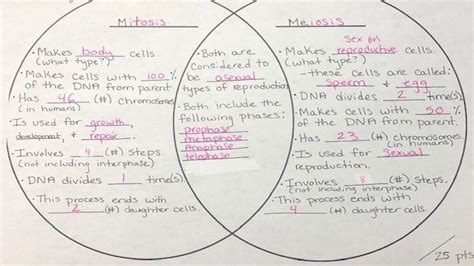 Mitosis
• Makes body cells
(what type?)
• Makes cells with 100 %
of the DNA from parent.
• Has 46 (#) chromosomes
(in humans)
• Is used for growth,
development, & repair
• Involves 4 (#) Steps.
(not including interphase)
• DNA divides 1 time(s).
• This process ends with
2 (#) daughter cells.
• Both are
considered to
be asexual
types of reproduction
• Both include the
following phases:
prophase
metaphase
Anaphase
telophase
Meiosis
Sex
• Makes reproductive cells.
(what type?)
– these cells are called:
Sperm & egg
• DNA divides 2 time(s)
• Makes cells with 50 %
of the DNA from parent.
• Has 23 (#) chromosomes
(in humans)
• Is used for Sexual
reproduction.
• Involves 8 (#) Steps.
(not including interphase)
• This process ends with
4 (#) daughter cells
/25 pts